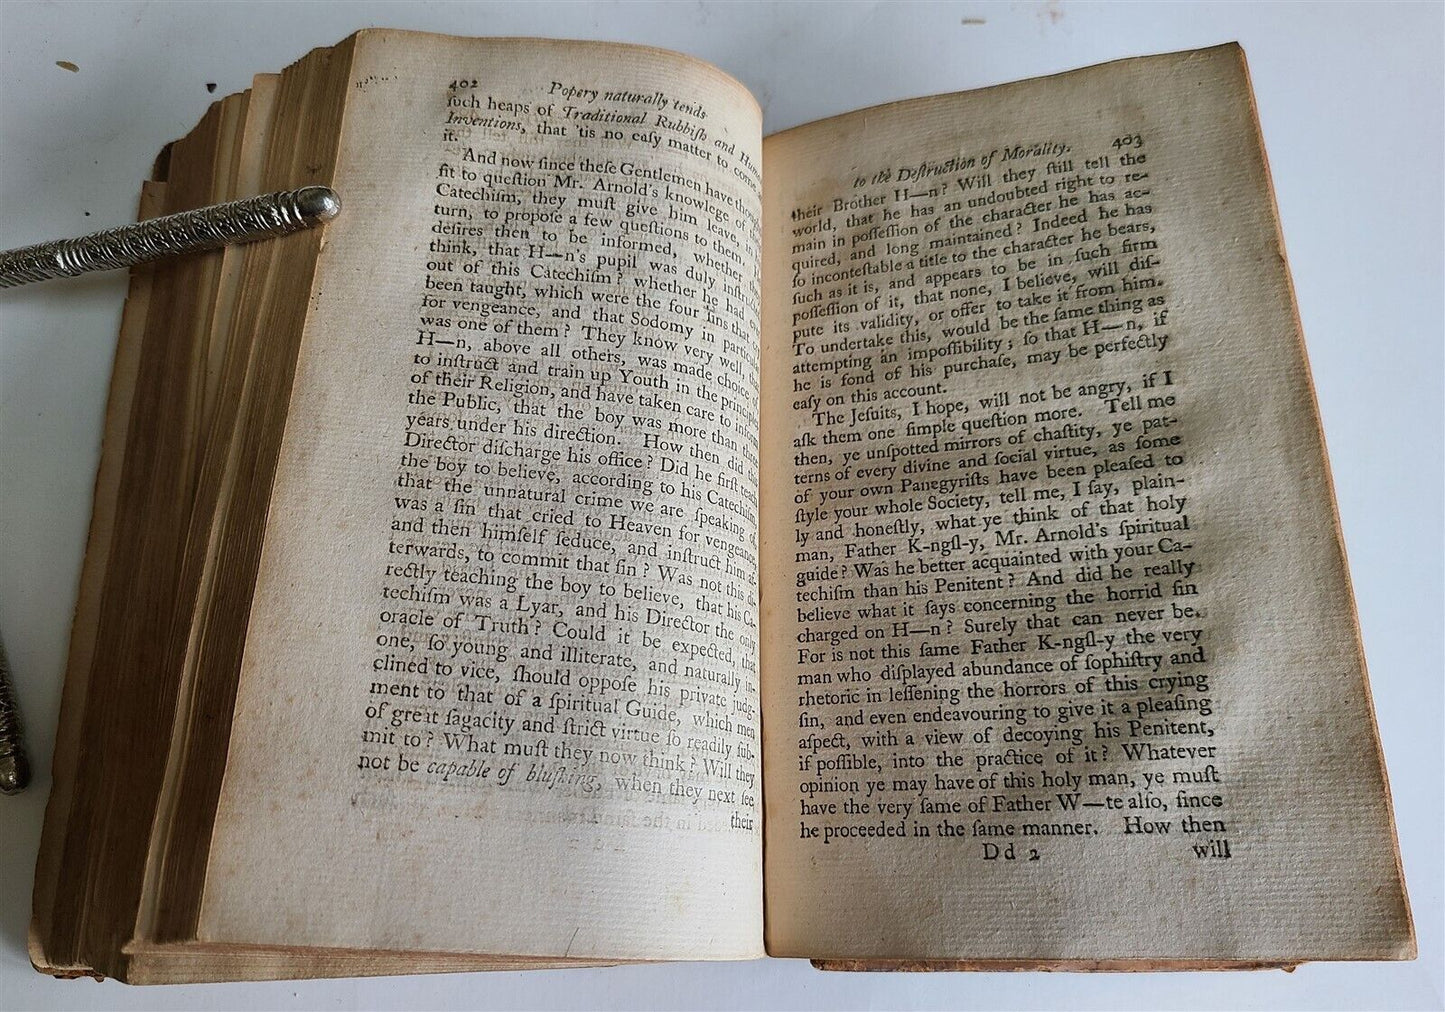 402 Popery naturally tends
ſuch heaps of Traditional Rubbiſh and
Inventions, that 'tis no eaſy matter to come
it.
And now ſince theſe Gentlemen have
fit to queſtion Mr. Arnold's knowlege of
Catechiſm, they muſt give him leave, in
turn, to propoſe a few queſtions to them.
deſires then to be informed, whether
think, that H—n's pupil was duly
out of this Catechiſm? whether he had
been taught, which were the four ſins that
for vengeance, and that Sodomy in
was one of them? They know very well,
H—n, above all others, was made choice
to inſtruct and train up Youth in the
of their Religion, and have taken care to inform
the Public, that the boy was more than three
years under his direction. How then did this
Director diſcharge his office? Did he firſt teach
the boy to believe, according to his Catechiſm,
that the unnatural crime we are ſpeaking of,
was a ſin that cried to Heaven for vengeance,
and then himſelf ſeduce, and inſtruct him af-
terwards, to commit that ſin? Was not this di-
rectly teaching the boy to believe, that his Ca-
techiſm was a Lyar, and his Director the only
oracle of Truth? Could it be expected, that
one, ſo young and illiterate, and naturally in-
clined to vice, ſhould oppoſe his private judg-
ment to that of a ſpiritual Guide, which men
of great ſagacity and ſtrict virtue ſo readily ſub-
mit to? What muſt they now think? Will they
not be capable of bluſhing, when they next ſee
their
to the Deſtruction of Morality. 403
their Brother H—n? Will they ſtill tell the
world, that he has an undoubted right to re-
main in poſſeſſion of the character he has ac-
quired, and long maintained? Indeed he has
ſo inconteſtable a title to the character he bears,
ſuch as it is, and appears to be in ſuch firm
poſſeſſion of it, that none, I believe, will diſ-
pute its validity, or offer to take it from him.
To undertake this, would be the ſame thing as
attempting an impoſſibility; ſo that H—n, if
he is fond of his purchaſe, may be perfectly
eaſy on this account.
The Jeſuits, I hope, will not be angry, if I
aſk them one ſimple queſtion more. Tell me
then, ye unſpotted mirrors of chaſtity, ye pat-
terns of every divine and ſocial virtue, as ſome
of your own Panegyriſts have been pleaſed to
ſtyle your whole Society, tell me, I ſay, plain-
ly and honeſtly, what ye think of that holy
man, Father K-ngſl-y, Mr. Arnold's ſpiritual
guide? Was he better acquainted with your Ca-
techiſm than his Penitent? And did he really
believe what it ſays concerning the horrid ſin
charged on H—n? Surely that can never be.
For is not this ſame Father K-ngſl-y the very
man who diſplayed abundance of ſophiſtry and
rhetoric in leſſening the horrors of this crying
ſin, and even endeavouring to give it a pleaſing
aſpect, with a view of decoying his Penitent,
if poſſible, into the practice of it? Whatever
opinion ye may have of this holy man, ye muſt
have the very ſame of Father W—te alſo, ſince
he proceeded in the ſame manner. How then
Dd 2 will